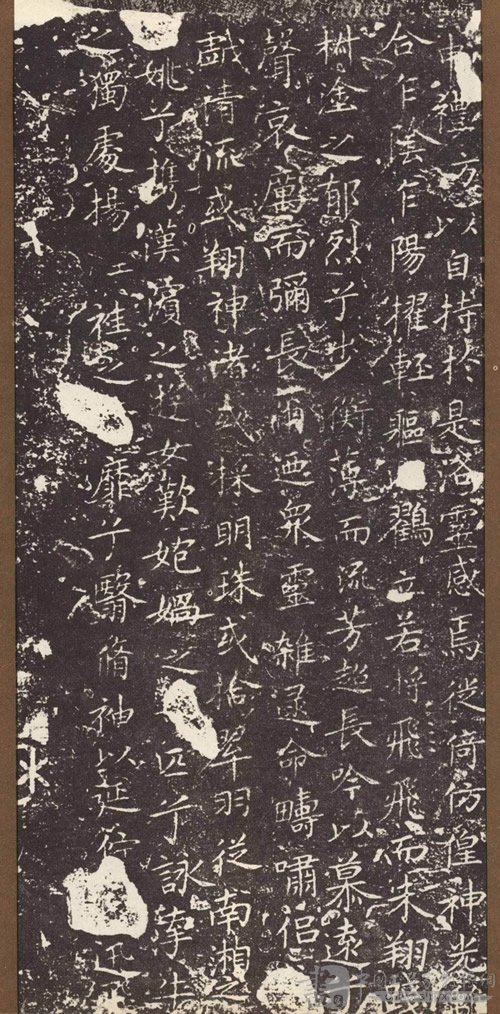 申禮方以自持於是洛靈感焉徙倚仿偟神光
合乍陰乍陽擢輕軀鶴立若將飛飛而未翔踐
樹塗之郁烈兮步衡薄而流芳超長吟以慕遠
聲哀厲而彌長爾迺衆靈雜遝命疇嘯侶
戲清流或翔神渚或採明珠或拾翠羽從南湘之
姚兮攜漢濱之遊女歎匏媧之匹兮詠牽牛
之獨處揚袿之靡兮翳脩袖以延佇迅